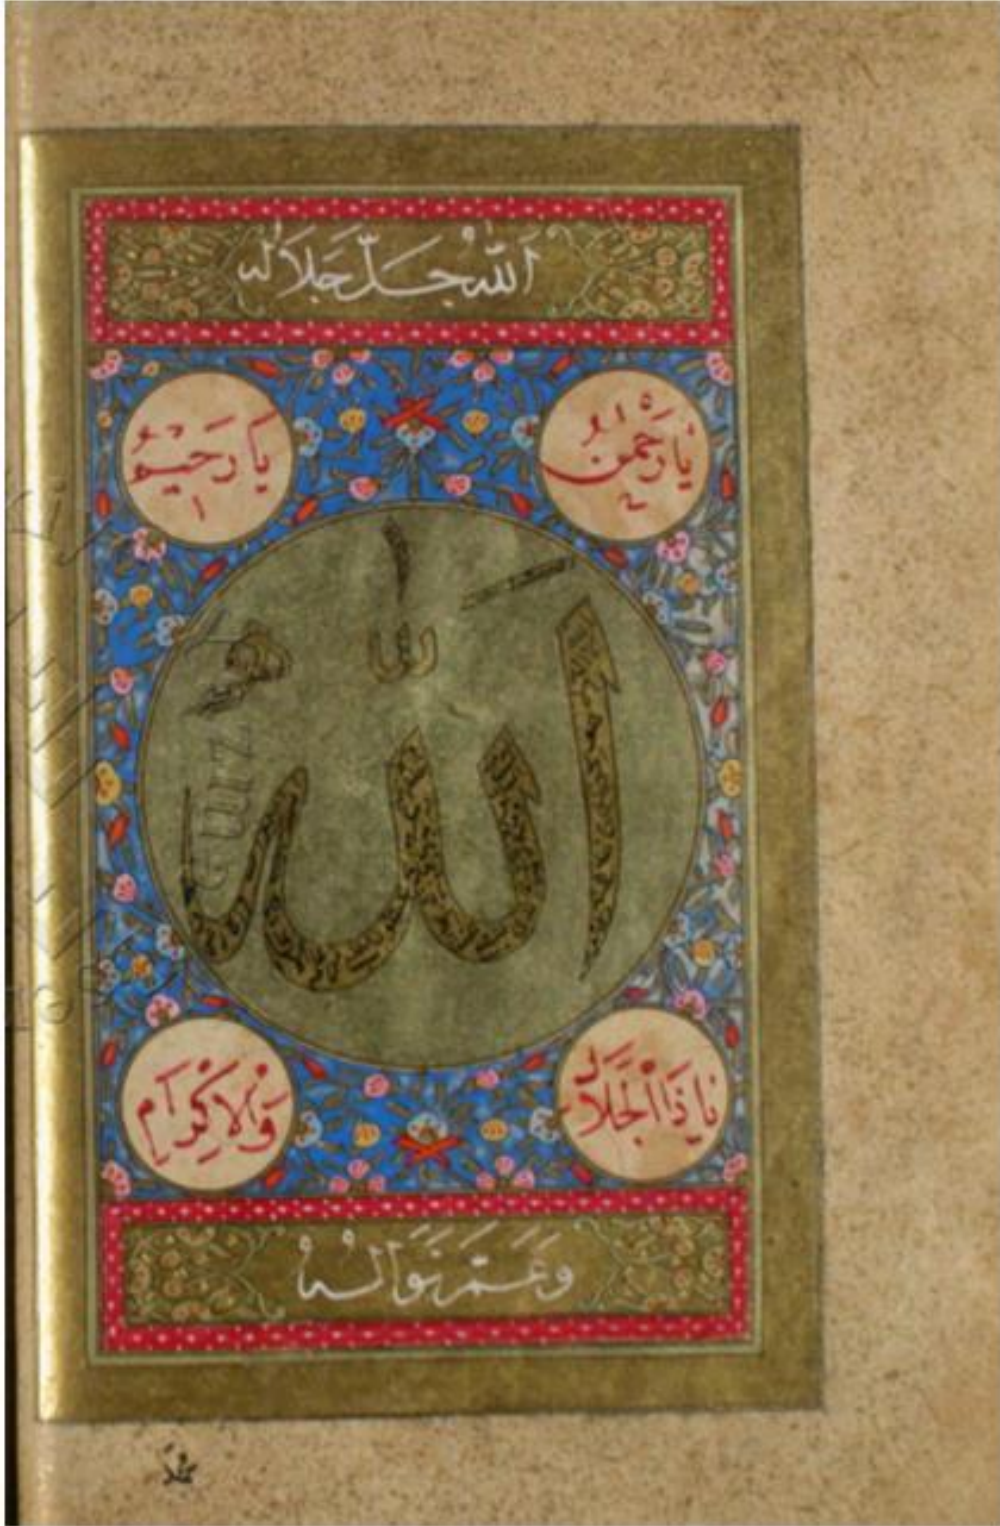 اَللّٰهُ جَلَّ جَلَالُهُ
يَا رَحْمٰنُ
يَا رَحِيمُ
اَللّٰهُ
يَا ذَا الْجَلَالِ
وَالْاِكْرَامِ
وَعَمَّ نَوَالُهُ